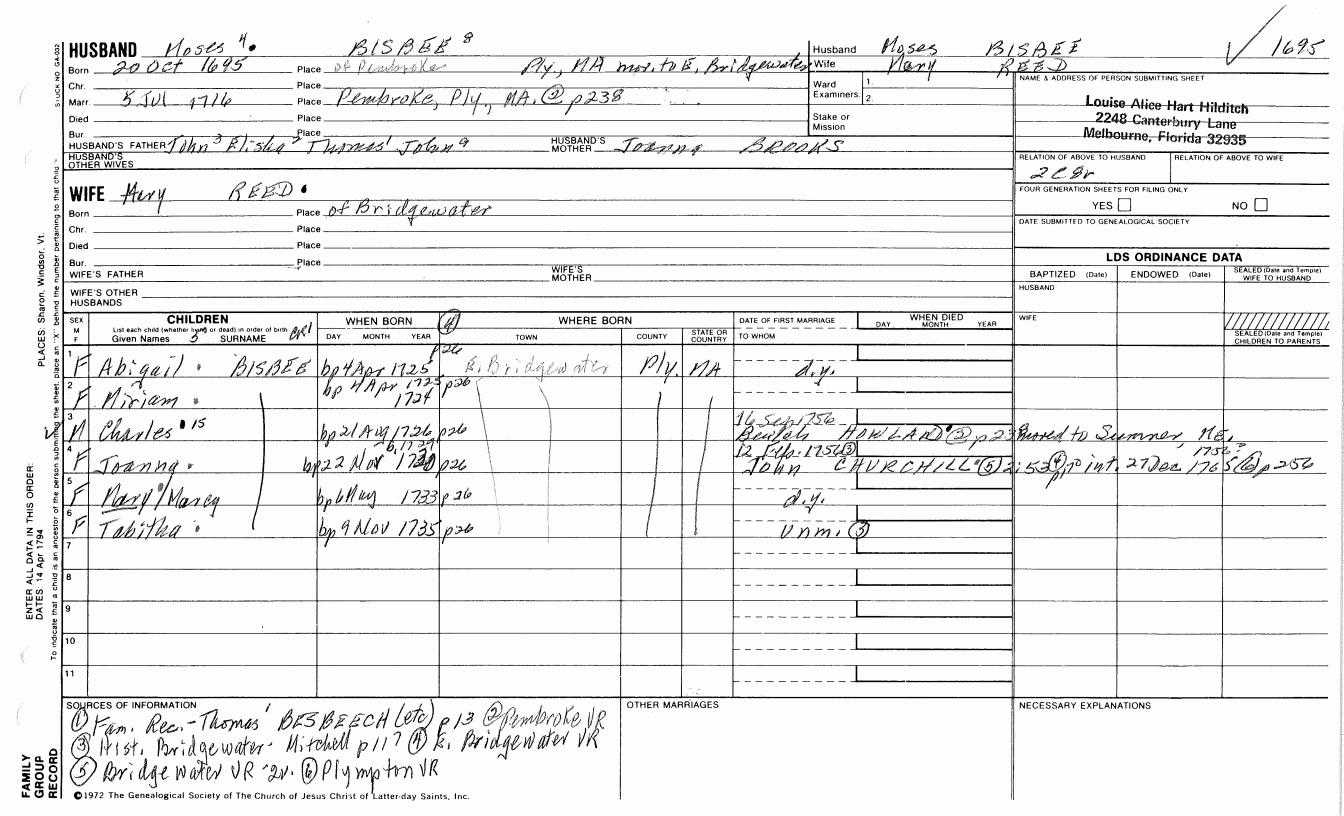 HUSBAND Moses 4. BISBEE 8
Husband Moses BISBEE
Wife Mary REED
√ 1695
Born 20 Oct 1695 Place of Pembroke Ply., MA mov. to E. Bridgewater
Chr. Place
Marr. 5 Jul 1716 Place Pembroke, Ply., MA. ② p238
Died Place
Bur. Place
Ward Examiners 1. 2.
Stake or Mission
NAME & ADDRESS OF PERSON SUBMITTING SHEET
Louise Alice Hart Hilditch
2248 Canterbury Lane
Melbourne, Florida 32935
HUSBAND'S FATHER John 3 Elisha 2 Thomas 1 John 9 HUSBAND'S MOTHER Joanna BROOKS
HUSBAND'S OTHER WIVES
RELATION OF ABOVE TO HUSBAND RELATION OF ABOVE TO WIFE
2C8r
WIFE Mary REED.
FOUR GENERATION SHEETS FOR FILING ONLY
YES NO
Born Place of Bridgewater
Chr. Place
Died Place
Bur. Place
DATE SUBMITTED TO GENEALOGICAL SOCIETY
WIFE'S FATHER WIFE'S MOTHER
WIFE'S OTHER HUSBANDS
LDS ORDINANCE DATA
BAPTIZED (Date) ENDOWED (Date) SEALED (Date and Temple) WIFE TO HUSBAND
HUSBAND
WIFE
SEALED (Date and Temple) CHILDREN TO PARENTS
SEX M F
CHILDREN
List each child (whether living or dead) in order of birth
Given Names 5 SURNAME
WHEN BORN
DAY MONTH YEAR
④
WHERE BORN
TOWN COUNTY STATE OR COUNTRY
DATE OF FIRST MARRIAGE
TO WHOM
WHEN DIED
DAY MONTH YEAR
1 F Abigail. BISBEE bp 4 Apr 1725 p26 E. Bridgewater Ply. MA d.y.
2 F Miriam. bp 4 Apr 1725 p26
1724
3 M Charles 15 bp 21 Aug 1726 p26 16 Sep 1756
Beulah HOWLAND ② p23 moved to Sumner, ME.
4 F Joanna. bp 22 Nov 1730 p26 b. 1729 12 Feb. 1756 ③
John CHURCHILL ⑤ 2:53 ④ p int. 27 Dec 1765 ⑥ p256
1756?
5 F Mary/Marcy bp 6 May 1733 p26 d.y.
6 F Tabitha. bp 9 Nov 1735 p26 Unm. ③
7
8
9
10
11
SOURCES OF INFORMATION
① Fam. Rec.-Thomas 1 BESBEECH (etc) p13 ② Pembroke VR
③ Hist. Bridgewater- Mitchell p117 ④ E. Bridgewater VR
⑤ Bridgewater VR -2v. ⑥ Plympton VR
OTHER MARRIAGES
NECESSARY EXPLANATIONS
©1972 The Genealogical Society of The Church of Jesus Christ of Latter-day Saints, Inc.
FAMILY GROUP RECORD
ENTER ALL DATA IN THIS ORDER:
DATES: 14 Apr 1794
PLACES: Sharon, Windsor, Vt.
To indicate that a child is an ancestor of the person submitting the sheet, place an "X" behind the number pertaining to that child